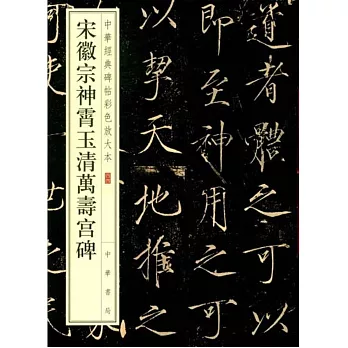 道者體之可
即至神用之
以挈天地推
中華經典碑帖彩色放大本
宋徽宗神霄玉清萬壽宫碑
中華書局